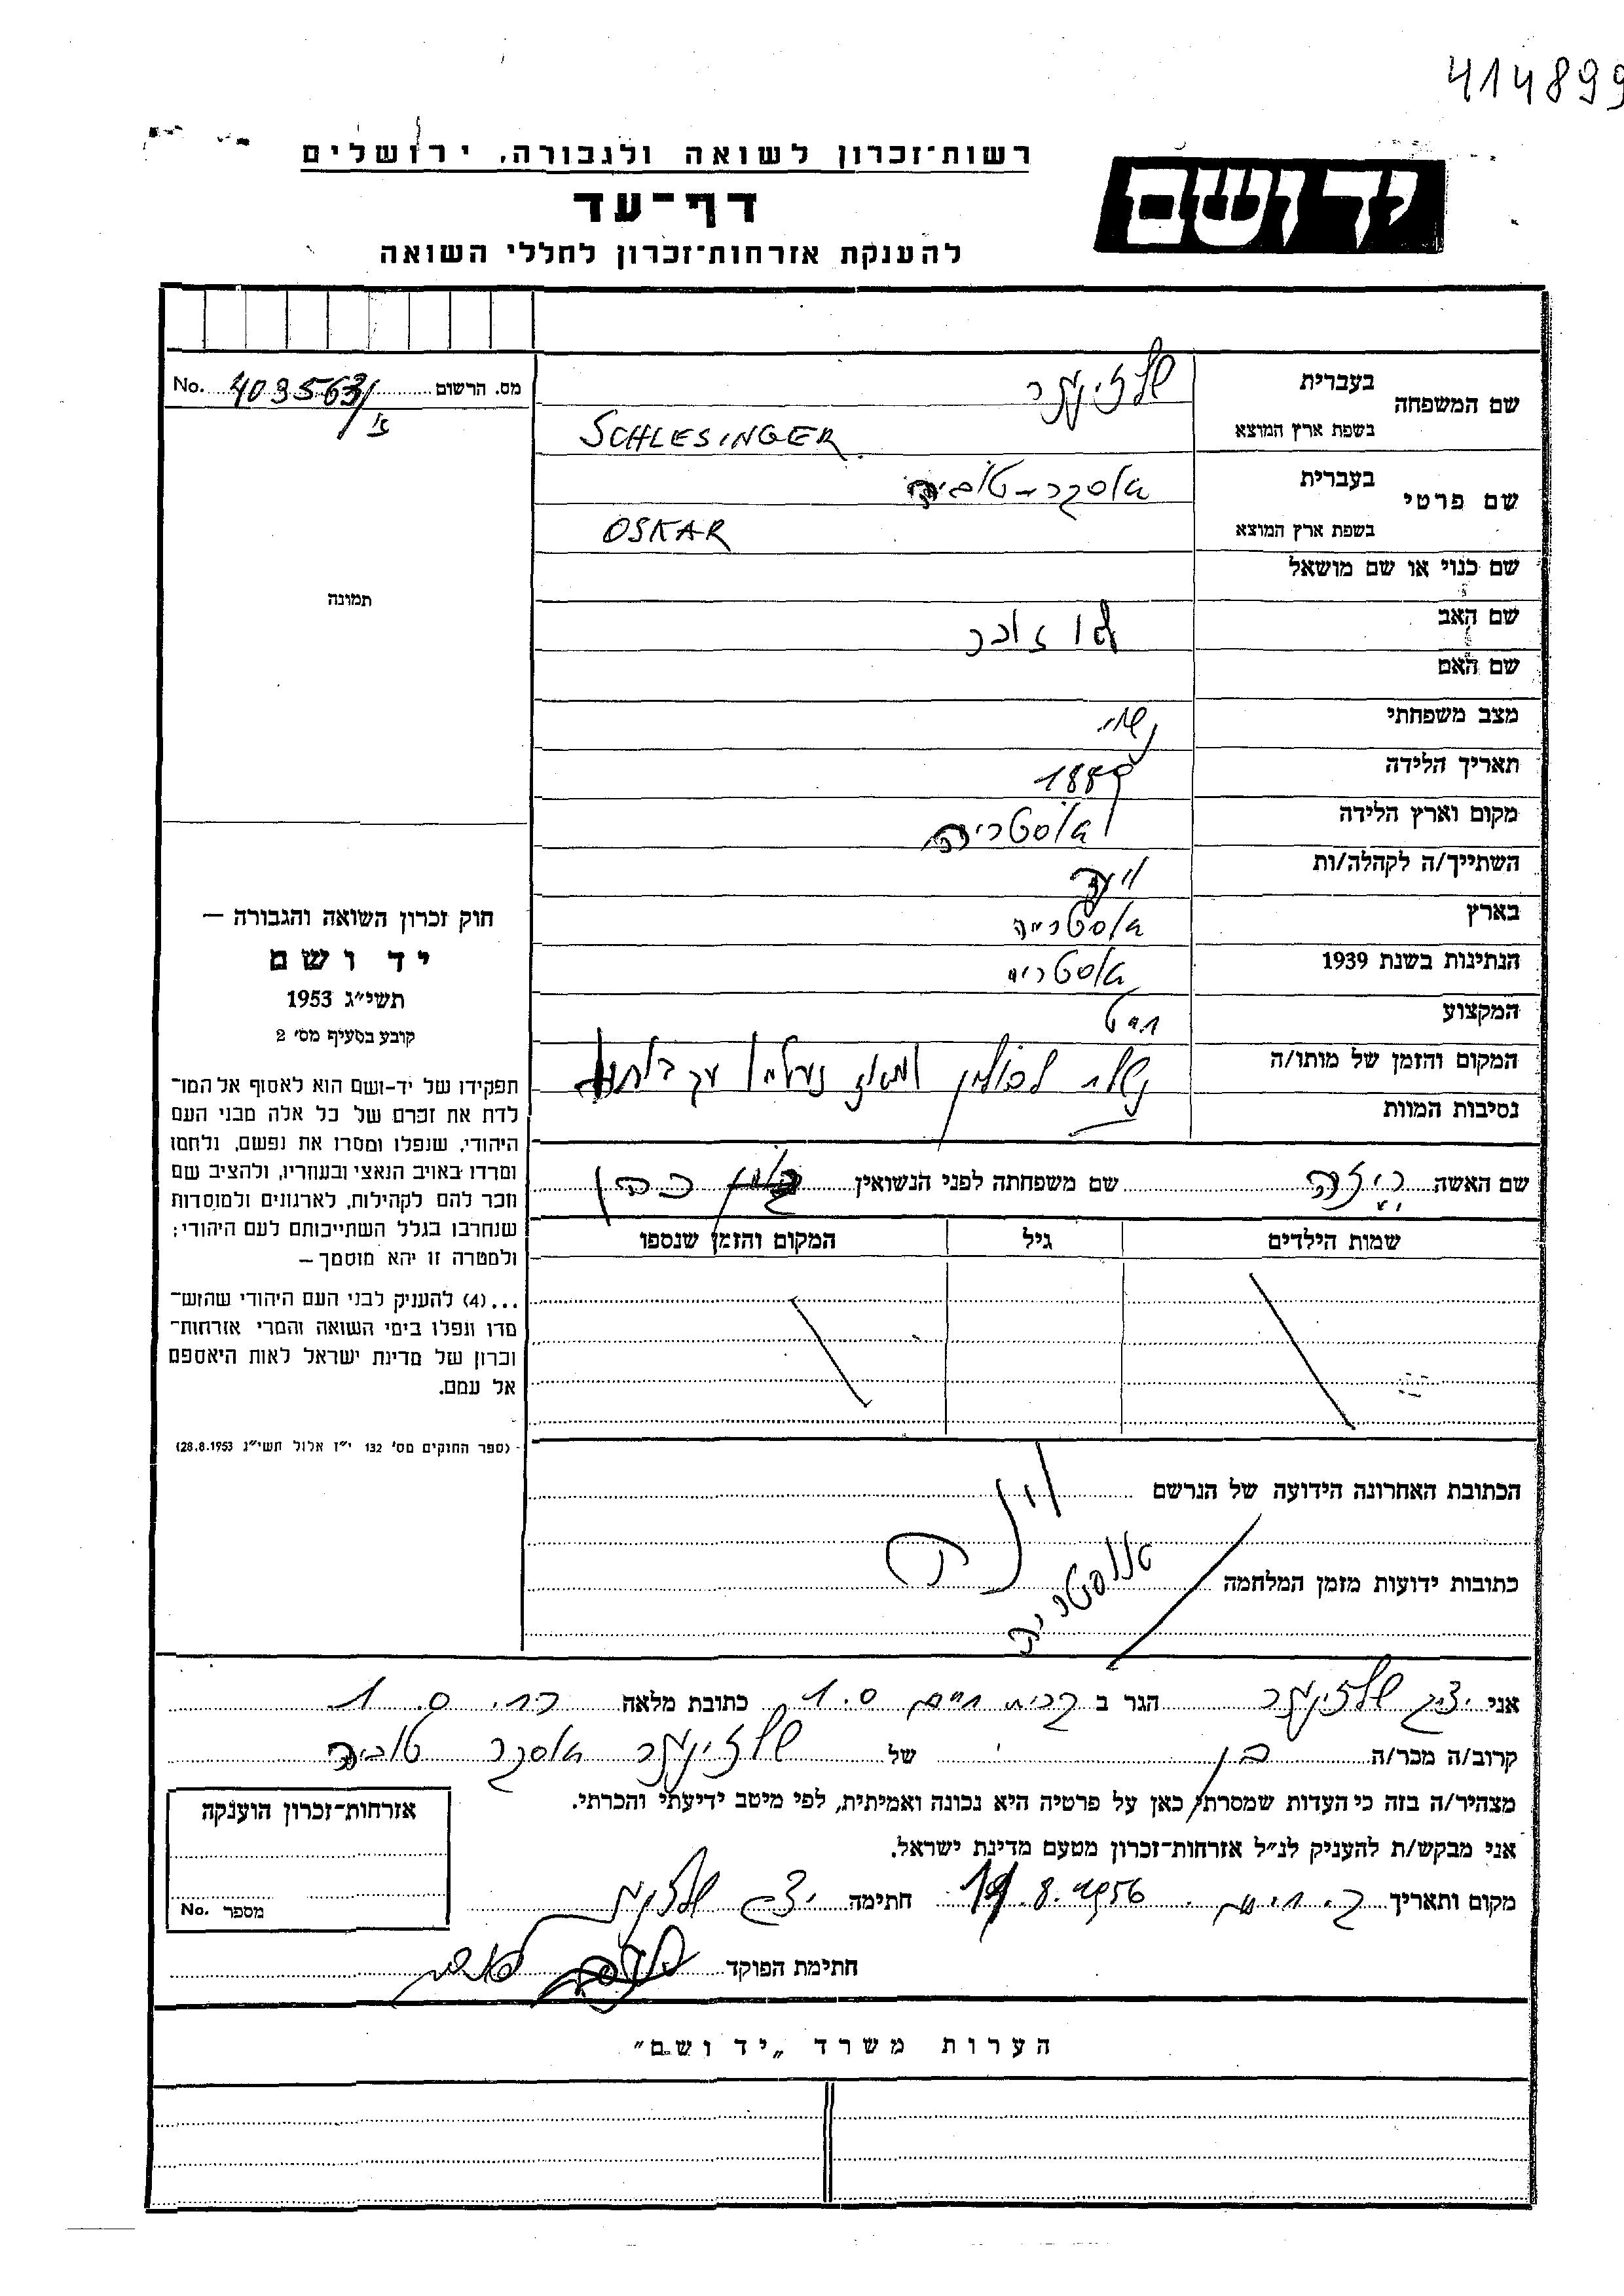 414899
רשות־זכרון לשואה ולגבורה, ירושלים
יד ושם
דף־עד
להענקת אזרחות־זכרון לחללי השואה
מס. הרשום 403563/ No.
תמונה
חוק זכרון השואה והגבורה –
יד ושם
תשי״ג 1953
קובע בסעיף מס׳ 2
תפקידו של יד-ושם הוא לאסוף אל המו־
לדת את זכרם של כל אלה מבני העם
היהודי, שנפלו ומסרו את נפשם, נלחמו
ומרדו באויב הנאצי ובעוזריו, ולהציב שם
וזכר להם לקהילות, לארגונים ולמוסדות
שנחרבו בגלל השתייכותם לעם היהודי;
ולמטרה זו יהא מוסמך –
...(4) להעניק לבני העם היהודי שהוש־
מדו ונפלו בימי השואה והמרי אזרחות־
זכרון של מדינת ישראל לאות היאספם
אל עמם.
(ספר החוקים מס׳ 132 י״ז אלול תשי״ג 28.8.1953)
שם המשפחה בעברית שלזינגר
בשפת ארץ המוצא SCHLESINGER
שם פרטי בעברית אוסקר-טוביה
בשפת ארץ המוצא OSKAR
שם כנוי או שם מושאל
שם האב
שם האם
מצב משפחתי נשוי
תאריך הלידה
מקום וארץ הלידה אוסטריה
השתייך/ה לקהלה/ות וינה
בארץ אוסטריה
הנתינות בשנת 1939 אוסטרית
המקצוע חייט
המקום והזמן של מותו/ה נשלח לפולין ומאז נעלמו עקבותיו
נסיבות המוות
שם האשה שם משפחתה לפני הנשואין כהן
שמות הילדים גיל המקום והזמן שנספו
הכתובת האחרונה הידועה של הנרשם וינה
אוסטריה
כתובות ידועות מזמן המלחמה
אני שלזינגר הגר ב קרית חיים כתובת מלאה
קרוב/ה מכר/ה בן של שלזינגר אוסקר טוביה
מצהיר/ה בזה כי העדות שמסרתי כאן על פרטיה היא נכונה ואמיתית, לפי מיטב ידיעתי והכרתי.
אני מבקש/ת להעניק לנ״ל אזרחות־זכרון מטעם מדינת ישראל.
מקום ותאריך ק. חיים 8.1956 חתימה שלזינגר
חתימת הפוקד
אזרחות־זכרון הוענקה
מספר No.
הערות משרד „יד ושם״